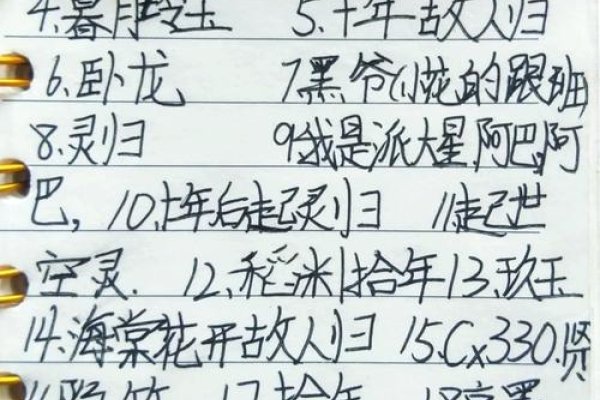 4.暮月 玉 5.十年故人归
6.卧龙 7.黑爷们花的跟班
8.灵归 9.我是派大星,阿巴,阿
巴, 10.十年后起灵归 11.起世
空灵. 12.稻米|拾年 13.玖玉
14.海棠花开故人归 15.Cx330.贤
17.拾年